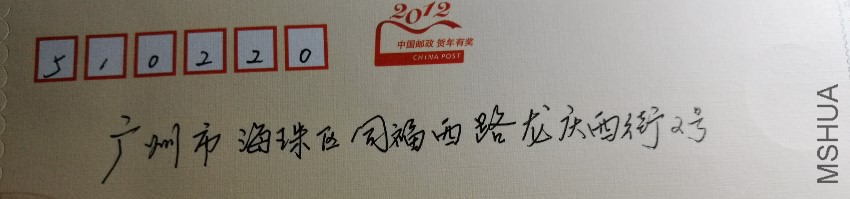 2012
中国邮政 贺年有奖
CHINA POST
510220
广州市海珠区同福西路龙庆西街2号
MSHUA